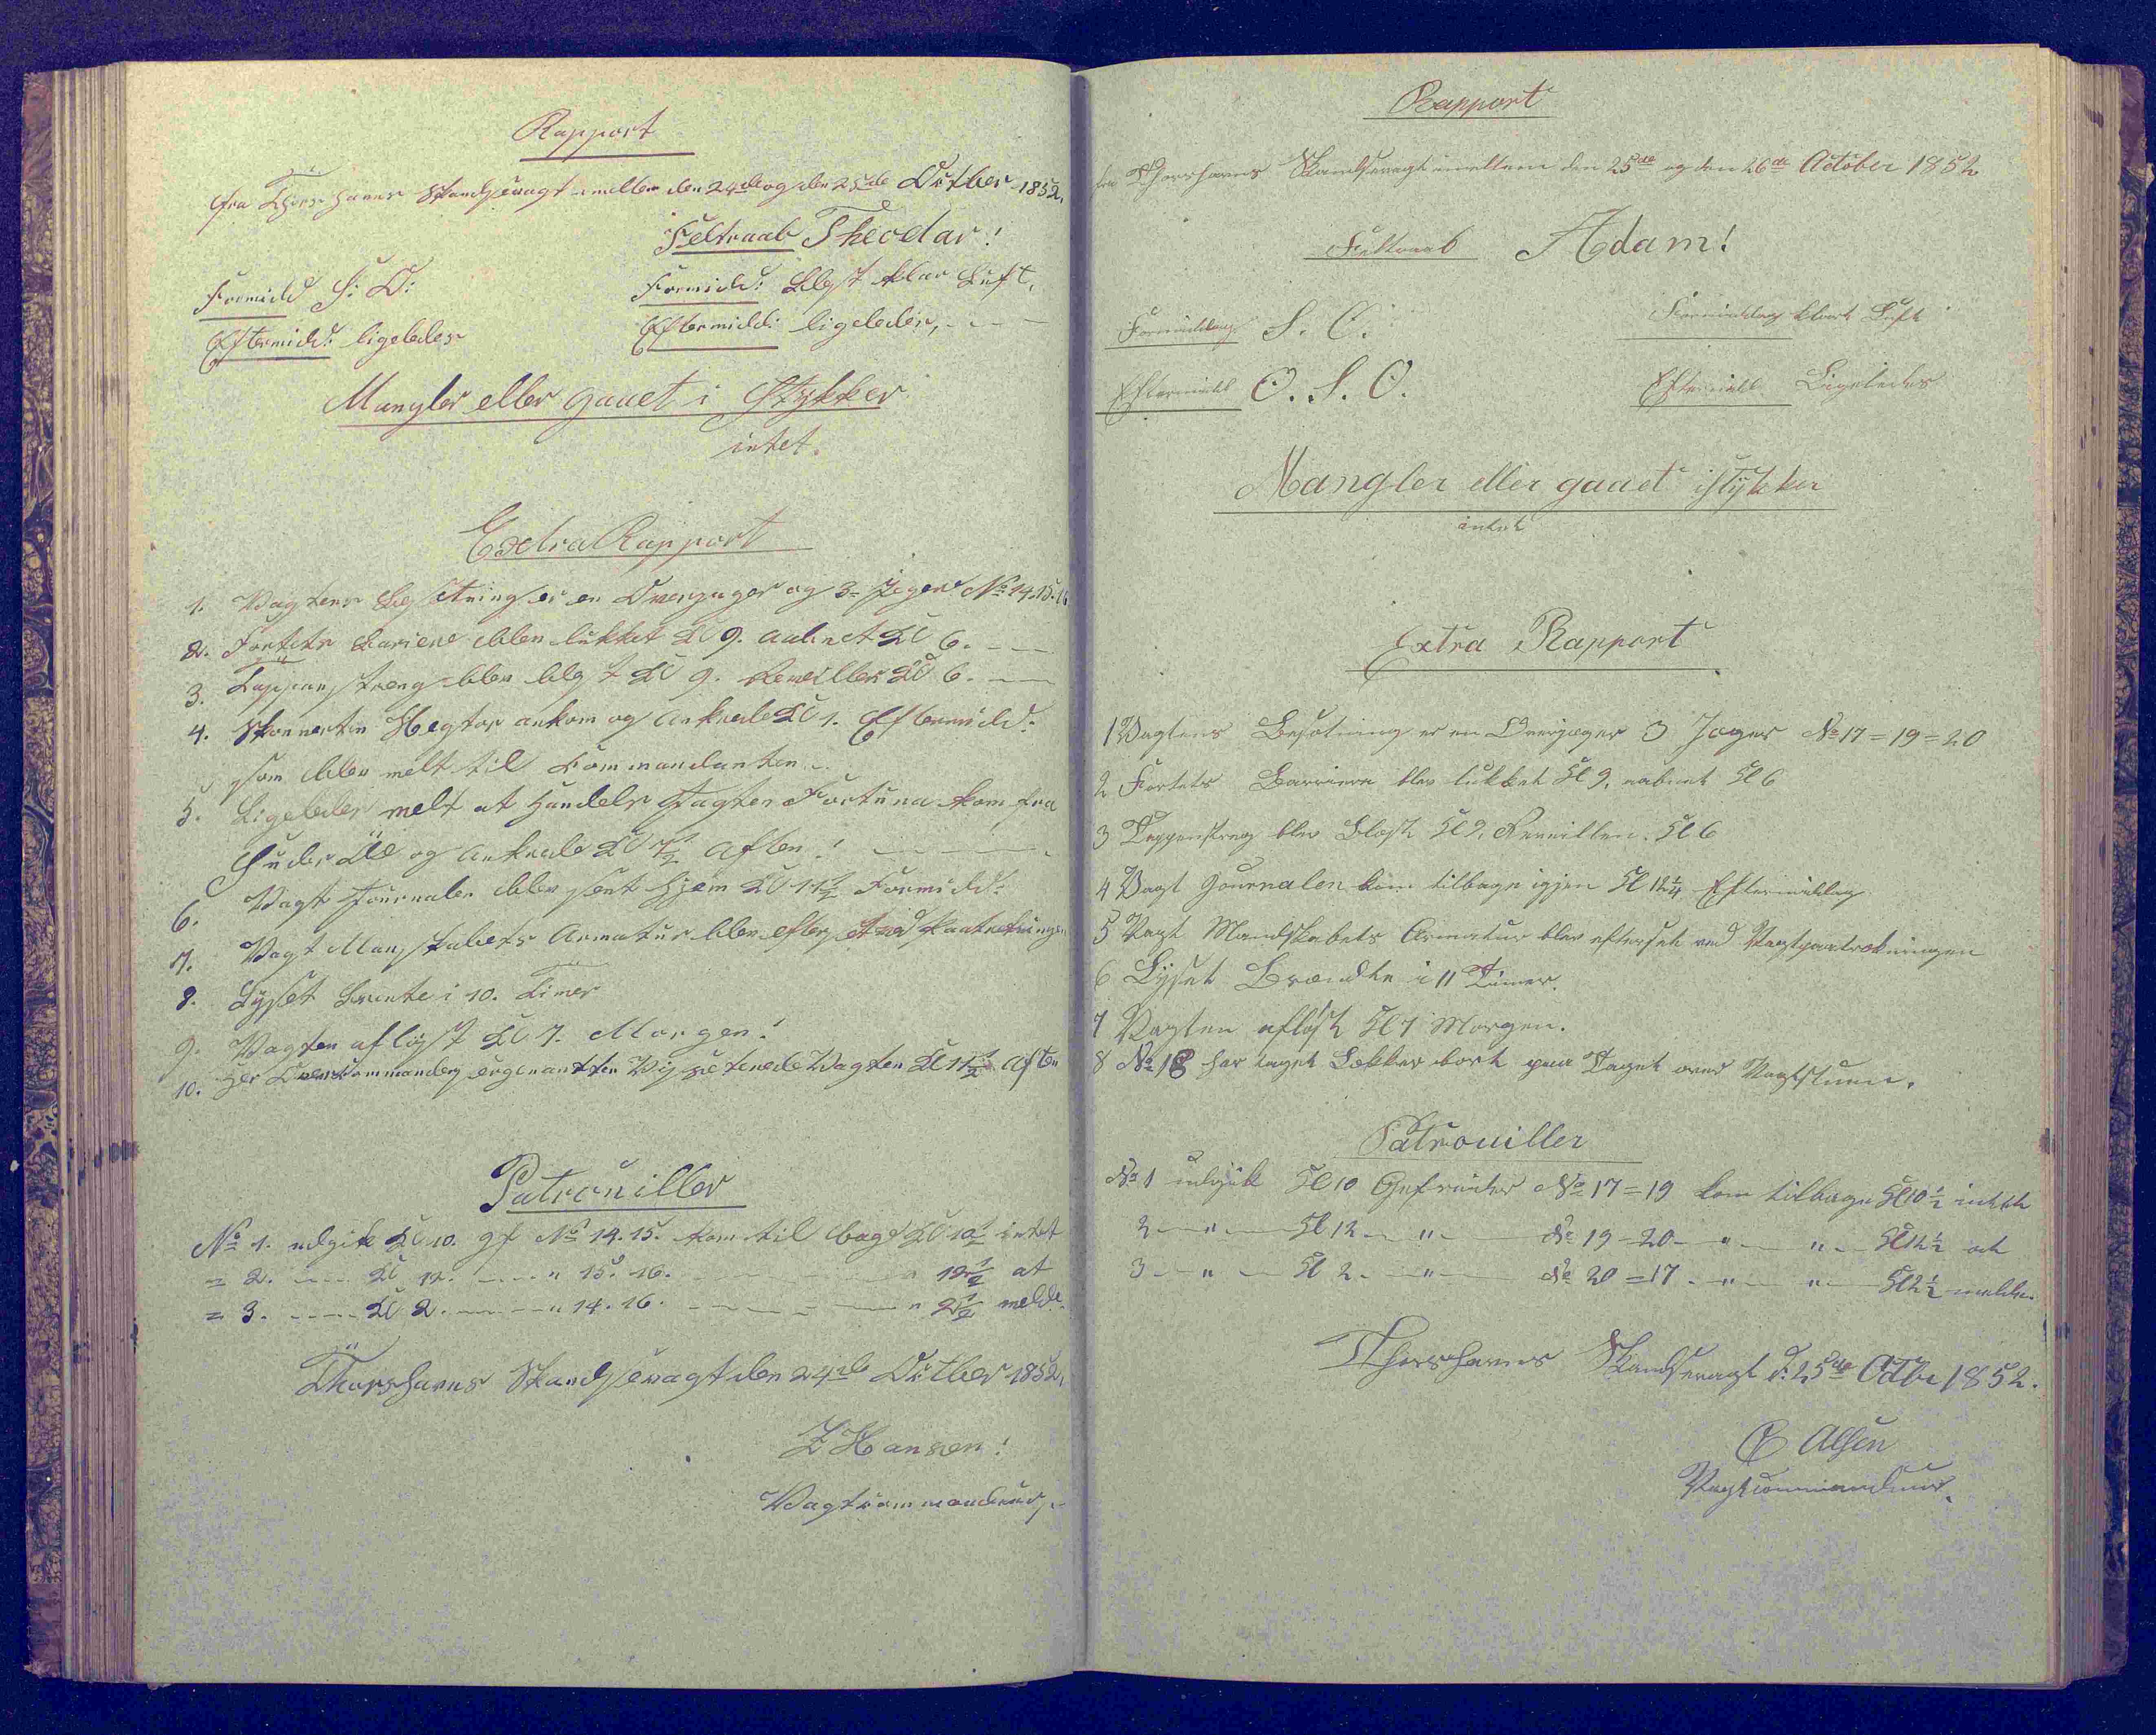 Rapport
fra Thorshavns Skandsevagt imellem den 24de og den 25de Octber 1852.
Feltraab Theodar!
Formidd S: O:
Formidd: Blest klar Luft,
Eftermidd: ligeledes
Eftermidd: ligeledes,
Mangler eller gaaet i Stykker
intet.
Extra Rapport
1. Vagtens Besetning er en Overjæger og 3 Jæger No 14.15.16
2. Fortets Bariere blev lukket Kl 9. aabnet Kl 6.
3. Tappenstreng blev blest Kl 9. Reveillen Kl 6.
4. Skonnerten Hegtor ankom og Ankrede Kl 1. Eftermidd:
som blev melt til Commandanten.
5. Ligeledes melt at Handels Jagten Fortuna kom fra
Suderöe og Ankrede Kl 7½ Aften!
6. Vagt Journalen blev sent hjem Kl 11½ Formidd:
7. Vagt Manskabets Armatur blev efterset ved
8. Lyset brente i 10. Timer
9. Vagten afløst Kl 7. Morgen!
10. Vagten Kl 11½ Aften
Patrouiller
No 1. udgik Kl 10. gf No 14.15. kom tilbage Kl 10½ intet
= 2. Kl 12. " 15. 16. " 12½ at
= 3. Kl 2. " 14. 16. " 2½ melde.
Thorshavns Skandsevagt den 24de Octber 1852.
Z Hansen!
Vagtcommandeur.
Rapport
fra Thorshavns Skandsevagt imellem den 25de og den 26de October 1852
Feltraab Adam!
Formiddag S. O.
Formiddag klart Luft
Eftermidd O. S. O.
Eftermidd Ligeledes
Mangler eller gaaet istykker
intet
Extra Rapport
1 Vagtens Besætning er en Overjæger 3 Jæger No 17 = 19 = 20
2 Fortets Barriere blev lukket Kl 9, aabnet Kl 6
3 Tappenstreg blev Blæst Kl 9, Reveillen. Kl 6
4 Vagt Journalen kom tilbage igjen Kl 12¼ Eftermiddag
5 Vagt Mandskabets Armatur blev efterset ved Vagtparatrækningen
6 Lyset Brændte i 11 Timer.
7 Vagten afløst Kl 7 Morgen.
8 No 18 har taget Lækker bort paa Taget over Vagtstuen.
Patrouiller
No 1 udgik Kl 10 Gefreider No 17 = 19 kom tilbage Kl 10½ intet
2 " Kl 12 " No 19 - 20 " " Kl 12½ at
3 " Kl 2 " No 20 = 17 " " Kl 2½ melde.
Thorshavns Skandsevagt d: 25de Octbr 1852.
Olsen
Vagtcommandeur.